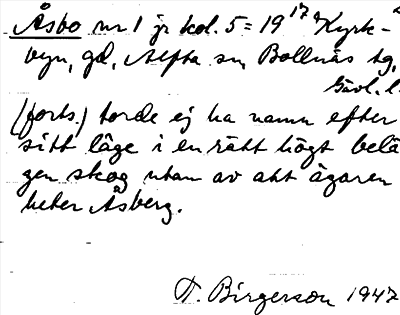 Åsbo nr 1 jr kol. 5 = 19 17/9 Kyrk-
byn, gd, Alfta sn, Bollnäs tg,
Gävl. l.
(forts.) torde ej ha namn efter
sitt läge i en rätt högt belä
gen skog utan av att ägaren
heter Åsberg.
T. Birgerson 1947